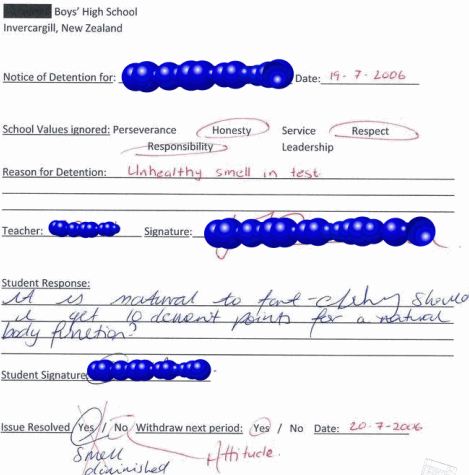 Boys' High School
Invercargill, New Zealand
Notice of Detention for: Date: 19-7-2006
School Values ignored: Perseverance Honesty Service Respect
Responsibility Leadership
Reason for Detention: Unhealthy smell in test
Teacher: Signature:
Student Response:
it is natural to fart - Why should
i get 10 demerit points for a natural
body function?
Student Signature
Issue Resolved Yes / No Withdraw next period: Yes / No Date: 20-7-2006
Smell
diminished
Attitude.